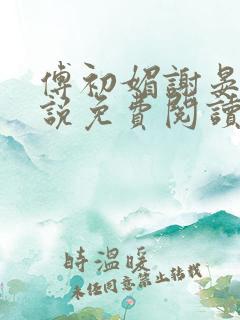 傅初媚謝晏
說免費閱讀
時溫暖
未经同意禁止转载